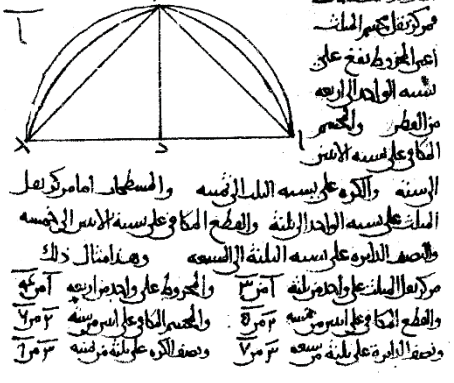 فمركز ثقل مجسم المثلث
اعنى المخروط يقع على
نسبة الواحد الى اربعة
من القطر والمجسم
المكافى على نسبة الاثنين
الى ستة والكرة على نسبة الثلثة الى ثمنية والمسطحات اما مركز ثقل
المثلث على نسبة الواحد الى ثلثة والقطع المكافى على نسبة الاثنين الى خمسة
والنصف الدايرة على نسبة الثلثة الى السبعة وهذا مثال ذلك
مركز ثقل المثلث على واحد من ثلثة ا من ٣ والمخروط على واحد من اربعة ا من
والقطع المكافى على اثنين من خمسة ٢ من والمجسم المكافى على اثنين من ستة ٢ من ٦
ونصف الدايرة على ثلثة من سبعة ٣ من ٧ ونصف الكرة على ثلثة من ثمنية ٣ من